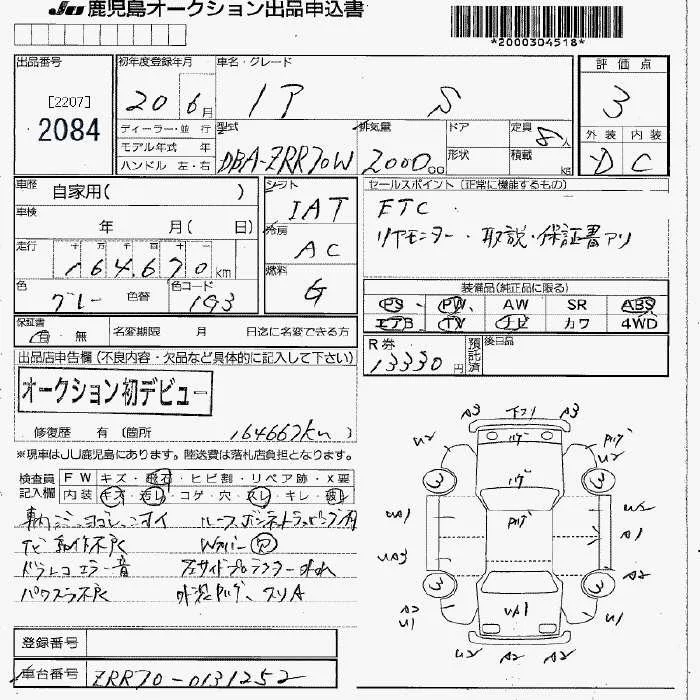 JU 鹿児島オークション出品申込書
*2000304518*
出品番号 [2207] 2084
初年度登録年月 20 6月
車名・グレード S
評価点 3
外装 D 内装 C
ディーラー・並行
モデル年式 年
ハンドル 左・右
型式 DBA-ZRR70W
排気量 2000 cc
ドア 形状
定員 8人
積載 kg
車歴 自家用( )
車検 年 月( 日)
走行 十 万 千 百 十 一 164,670km
色 グレー 色替 色コード 193
シフト IAT
冷房 AC
燃料 G
セールスポイント (正常に機能するもの)
ETC
リヤモニター・取説・保証書アリ
装備品(純正品に限る)
PS PW AW SR ABS
エアB TV ナビ カワ 4WD
R券 13330円
預託済
後日品
保証書 有 無 名変期限 月 日迄に名変できる方
出品店申告欄(不良内容・欠品など具体的に記入して下さい)
オークション初デビュー
修復歴 有(箇所 164667km )
※現車はJU鹿児島にあります。陸送費は落札店負担となります。
検査員記入欄
FW キズ・飛石・ヒビ割・リペア跡・X要
内装 キズ・汚レ・コゲ・穴・スレ・キレ・破レ
ナビ動作不良 Wカバー穴
ドラレコエラー音
パワスラ不良
登録番号
車台番号 ZRR70-0131252
A3 A3
U2 U2
3 3
UA1 U2
A1
UA3 A2
3 3
A2 U1 UA1 U1
U2 A2 A2